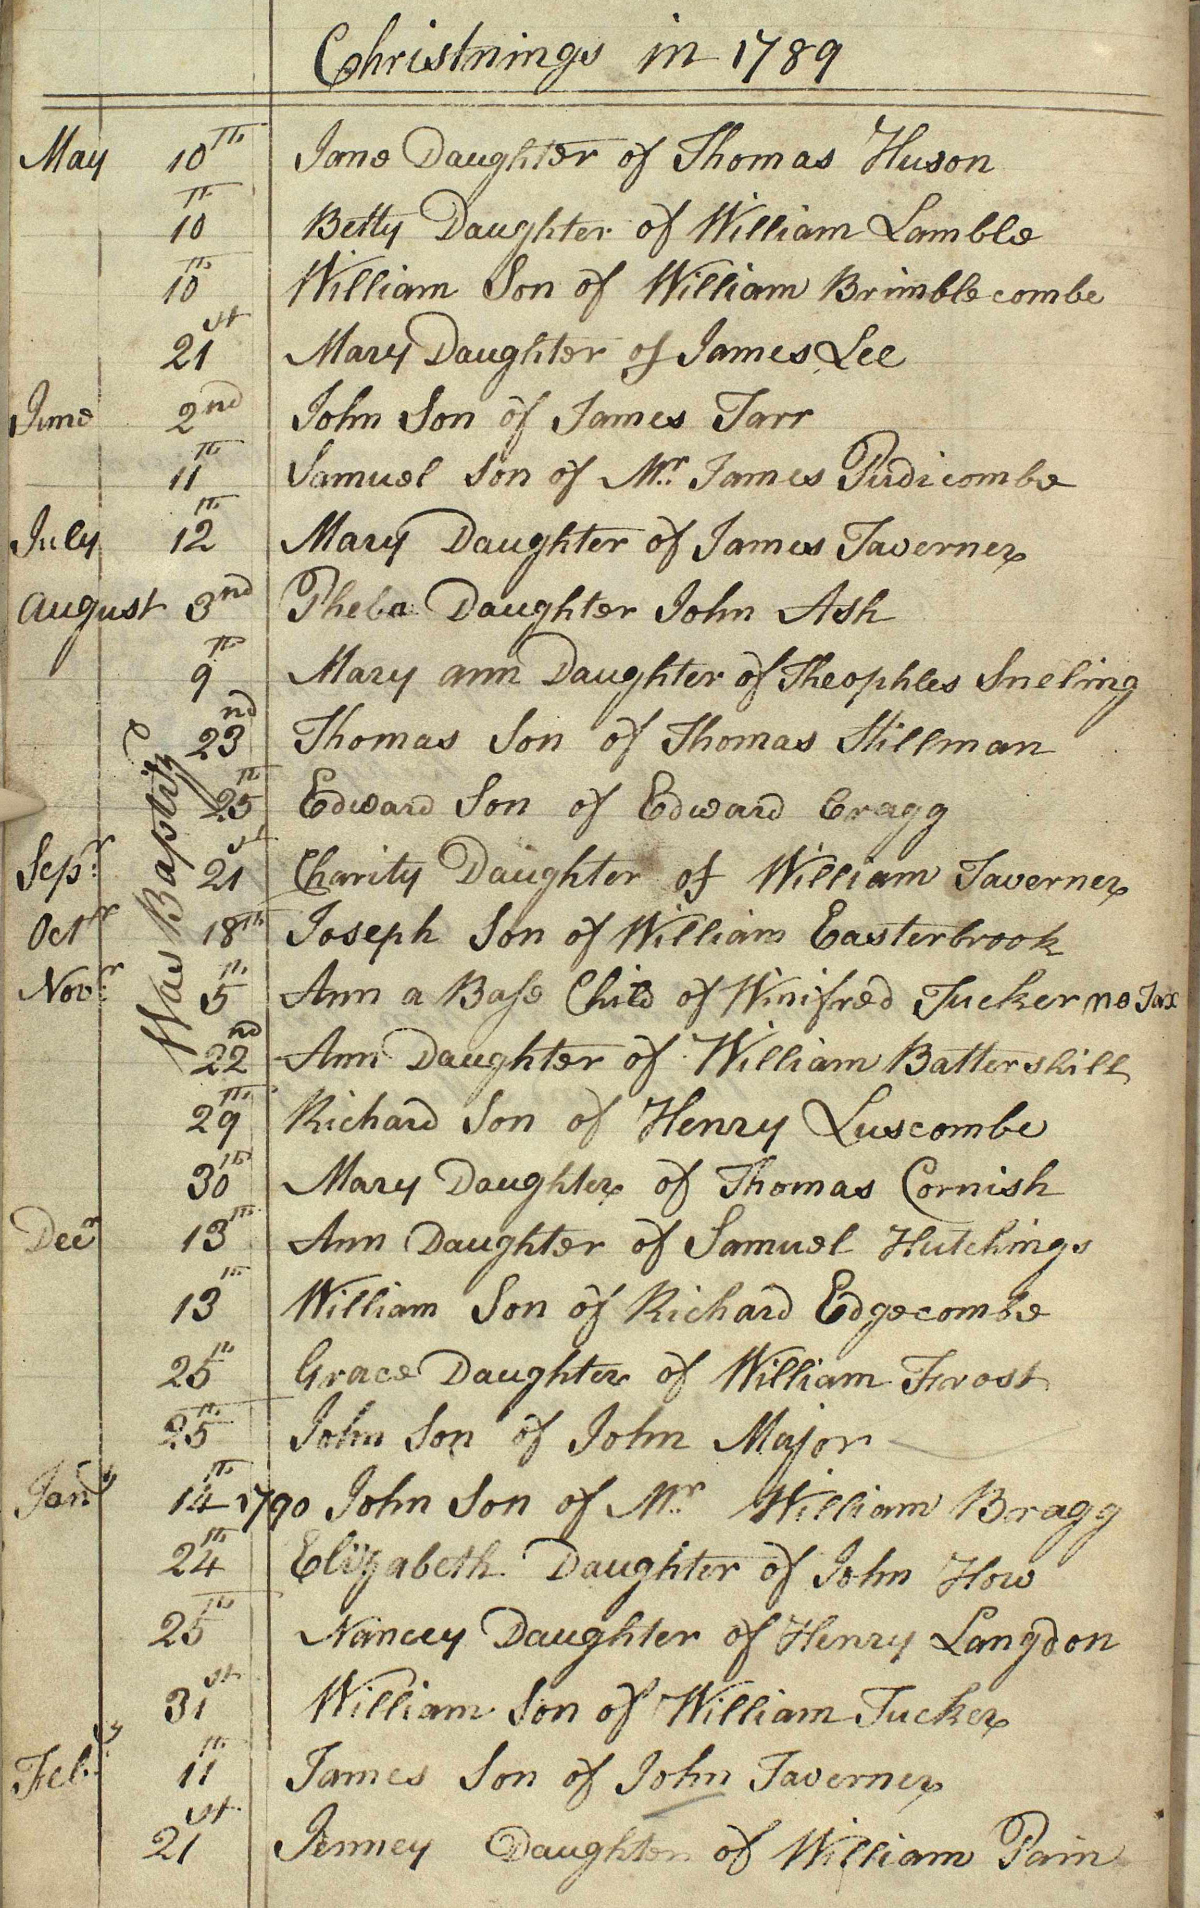 Christnings in 1789
May 10th Jane Daughter of Thomas Huson
10th Betty Daughter of William Lamble
10th William Son of William Brimblecombe
21st Mary Daughter of James Lee
June 2nd John Son of James Tarr
11th Samuel Son of Mr. James Pudicombe
July 12th Mary Daughter of James Taverner
August 3nd Pheba Daughter John Ash
9th Mary ann Daughter of Theophles Sneling
23nd Thomas Son of Thomas Stillman
Was Baptizd
25th Edward Son of Edward Cragg
Sepr. 21st Charity Daughter of William Taverner
Octr 18th Joseph Son of William Easterbrook
Novr. 5th Ann a Base Child of Winifred Tucker no Tax
22nd Ann Daughter of William Battershill
29th Richard Son of Henry Luscombe
30th Mary Daughter of Thomas Cornish
Decr 13th Ann Daughter of Samuel Hutchings
13th William Son of Richard Edgecombe
25th Grace Daughter of William Frost
25th John Son of John Major
Jany 14th 1790 John Son of Mr. William Bragg
24th Elizabeth Daughter of John How
25th Nancey Daughter of Henry Langdon
31st William Son of William Tucker
Feby. 11th James Son of John Taverner
21st Jenney Daughter of William Pain